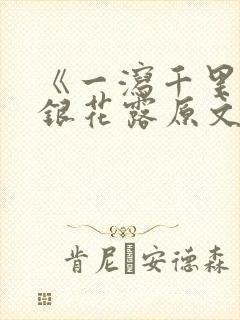 《一泻千里
银花露原文
肯尼·安德森